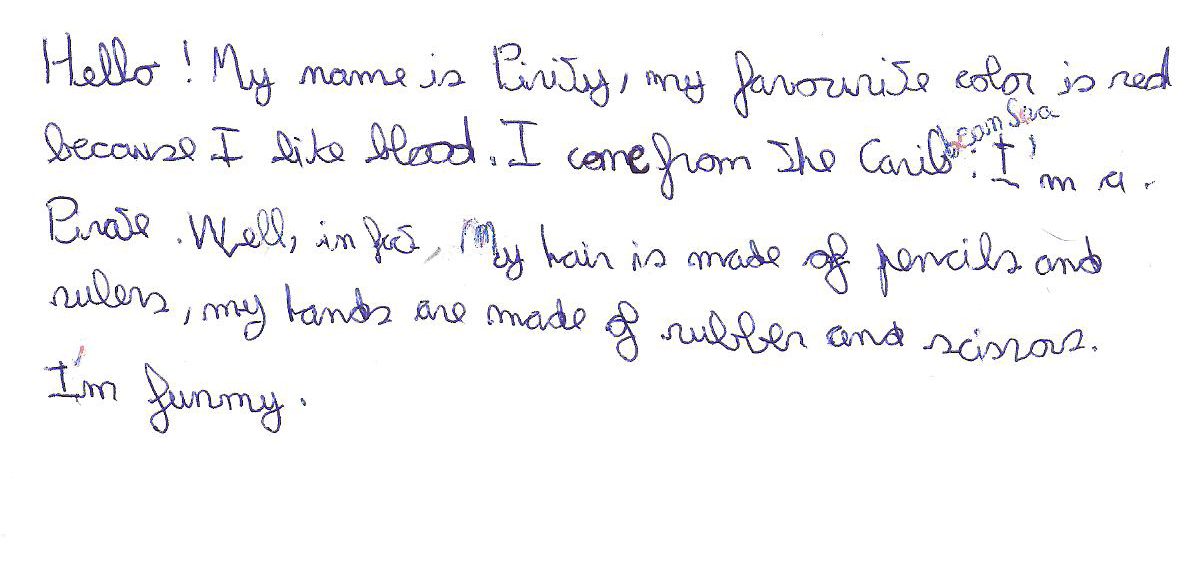 Hello! My name is Pirity, my favourite color is red
because I like blood. I come from the Caribbean Sea. I'm a
Pirate. Well, in fact, My hair is made of pencils and
rulers, my hands are made of rubber and scissors.
I'm funny.